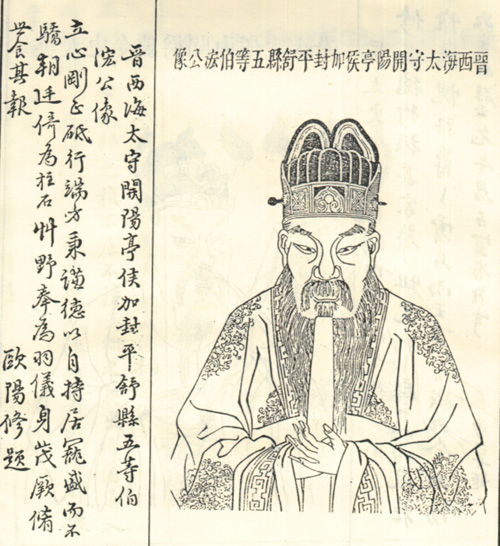 晉西海太守開陽亭侯加封平舒縣五等伯浤公像
晉西海太守開陽亭侯加封平舒縣五等伯
浤公像
立心剛正砥行端方秉謙德以自持居寵盛而不
驕朝廷倚為柱石艸野奉為羽儀身茂厥脩
世其報
歐陽修題